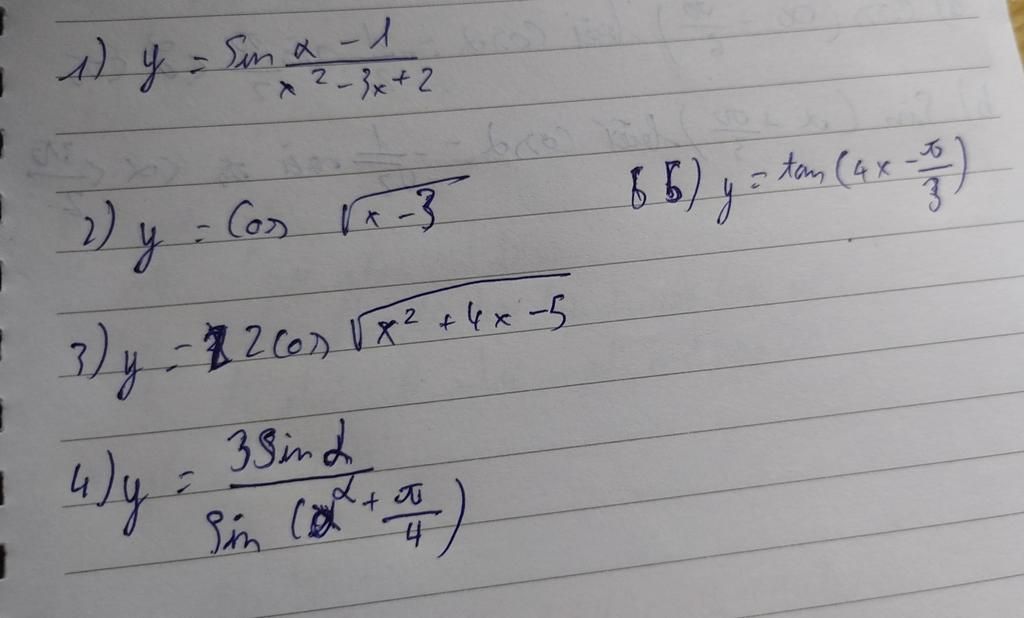 1) y = sin \frac{x-1}{x^2-3x+2}
2) y = cos \sqrt{x-3}
5) y = tan(4x - \frac{π}{3})
3) y = 2cos \sqrt{x^2+4x-5}
4) y = \frac{3sin α}{sin(α + \frac{π}{4})}